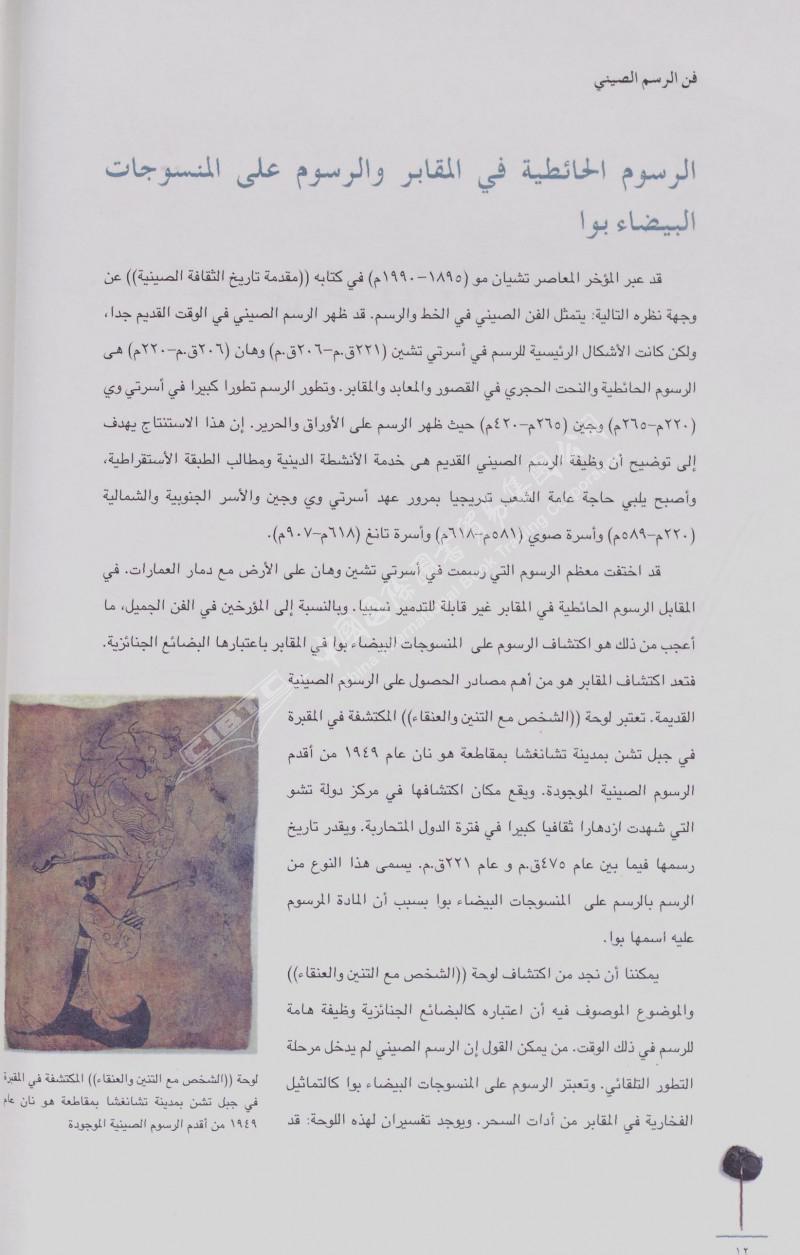 فن الرسم الصيني
الرسوم الحائطية في المقابر والرسوم على المنسوجات
البيضاء بوا
قد عبر المؤخر المعاصر تشيان مو (١٨٩٥-١٩٩٠م) في كتابه ((مقدمة تاريخ الثقافة الصينية)) عن
وجهة نظره التالية: يتمثل الفن الصيني في الخط والرسم. قد ظهر الرسم الصيني في الوقت القديم جدا،
ولكن كانت الأشكال الرئيسية للرسم في أسرتي تشين (٢٢١ق.م-٢٠٦ق.م) وهان (٢٠٦ق.م-٢٢٠م) هى
الرسوم الحائطية والنحت الحجري في القصور والمعابد والمقابر. وتطور الرسم تطورا كبيرا في أسرتي وي
(٢٢٠م-٢٦٥م) وجين (٢٦٥م-٤٢٠م) حيث ظهر الرسم على الأوراق والحرير. إن هذا الاستنتاج يهدف
إلى توضيح أن وظيفة الرسم الصيني القديم هى خدمة الأنشطة الدينية ومطالب الطبقة الأستقراطية،
وأصبح يلبي حاجة عامة الشعب تدريجيا بمرور عهد أسرتي وي وجين والأسر الجنوبية والشمالية
(٢٢٠م-٥٨٩م) وأسرة صوي (٥٨١م-٦١٨م) وأسرة تانغ (٦١٨م-٩٠٧م).
قد اختفت معظم الرسوم التي رسمت في أسرتي تشين وهان على الأرض مع دمار العمارات. في
المقابل الرسوم الحائطية في المقابر غير قابلة للتدمير نسبيا. وبالنسبة إلى المؤرخين في الفن الجميل، ما
أعجب من ذلك هو اكتشاف الرسوم على المنسوجات البيضاء بوا في المقابر باعتبارها البضائع الجنائزية.
فتعد اكتشاف المقابر هو من أهم مصادر الحصول على الرسوم الصينية
القديمة. تعتبر لوحة ((الشخص مع التنين والعنقاء)) المكتشفة في المقبرة
في جبل تشن بمدينة تشانغشا بمقاطعة هو نان عام ١٩٤٩ من أقدم
الرسوم الصينية الموجودة. ويقع مكان اكتشافها في مركز دولة تشو
التي شهدت ازدهارا ثقافيا كبيرا في فترة الدول المتحاربة. ويقدر تاريخ
رسمها فيما بين عام ٤٧٥ق.م و عام ٢٢١ق.م. يسمى هذا النوع من
الرسم بالرسم على المنسوجات البيضاء بوا بسبب أن المادة المرسوم
عليه اسمها بوا.
يمكننا أن نجد من اكتشاف لوحة ((الشخص مع التنين والعنقاء))
والموضوع الموصوف فيه أن اعتباره كالبضائع الجنائزية وظيفة هامة
للرسم في ذلك الوقت. من يمكن القول إن الرسم الصيني لم يدخل مرحلة
التطور التلقائي. وتعبتر الرسوم على المنسوجات البيضاء بوا كالتماثيل
الفخارية في المقابر من أدات السحر. ويوجد تفسيران لهذه اللوحة: قد
لوحة ((الشخص مع التنين والعنقاء)) المكتشفة في المقبرة
في جبل تشن بمدينة تشانغشا بمقاطعة هو نان عام
١٩٤٩ من أقدم الرسوم الصينية الموجودة
CIBTC
١٢